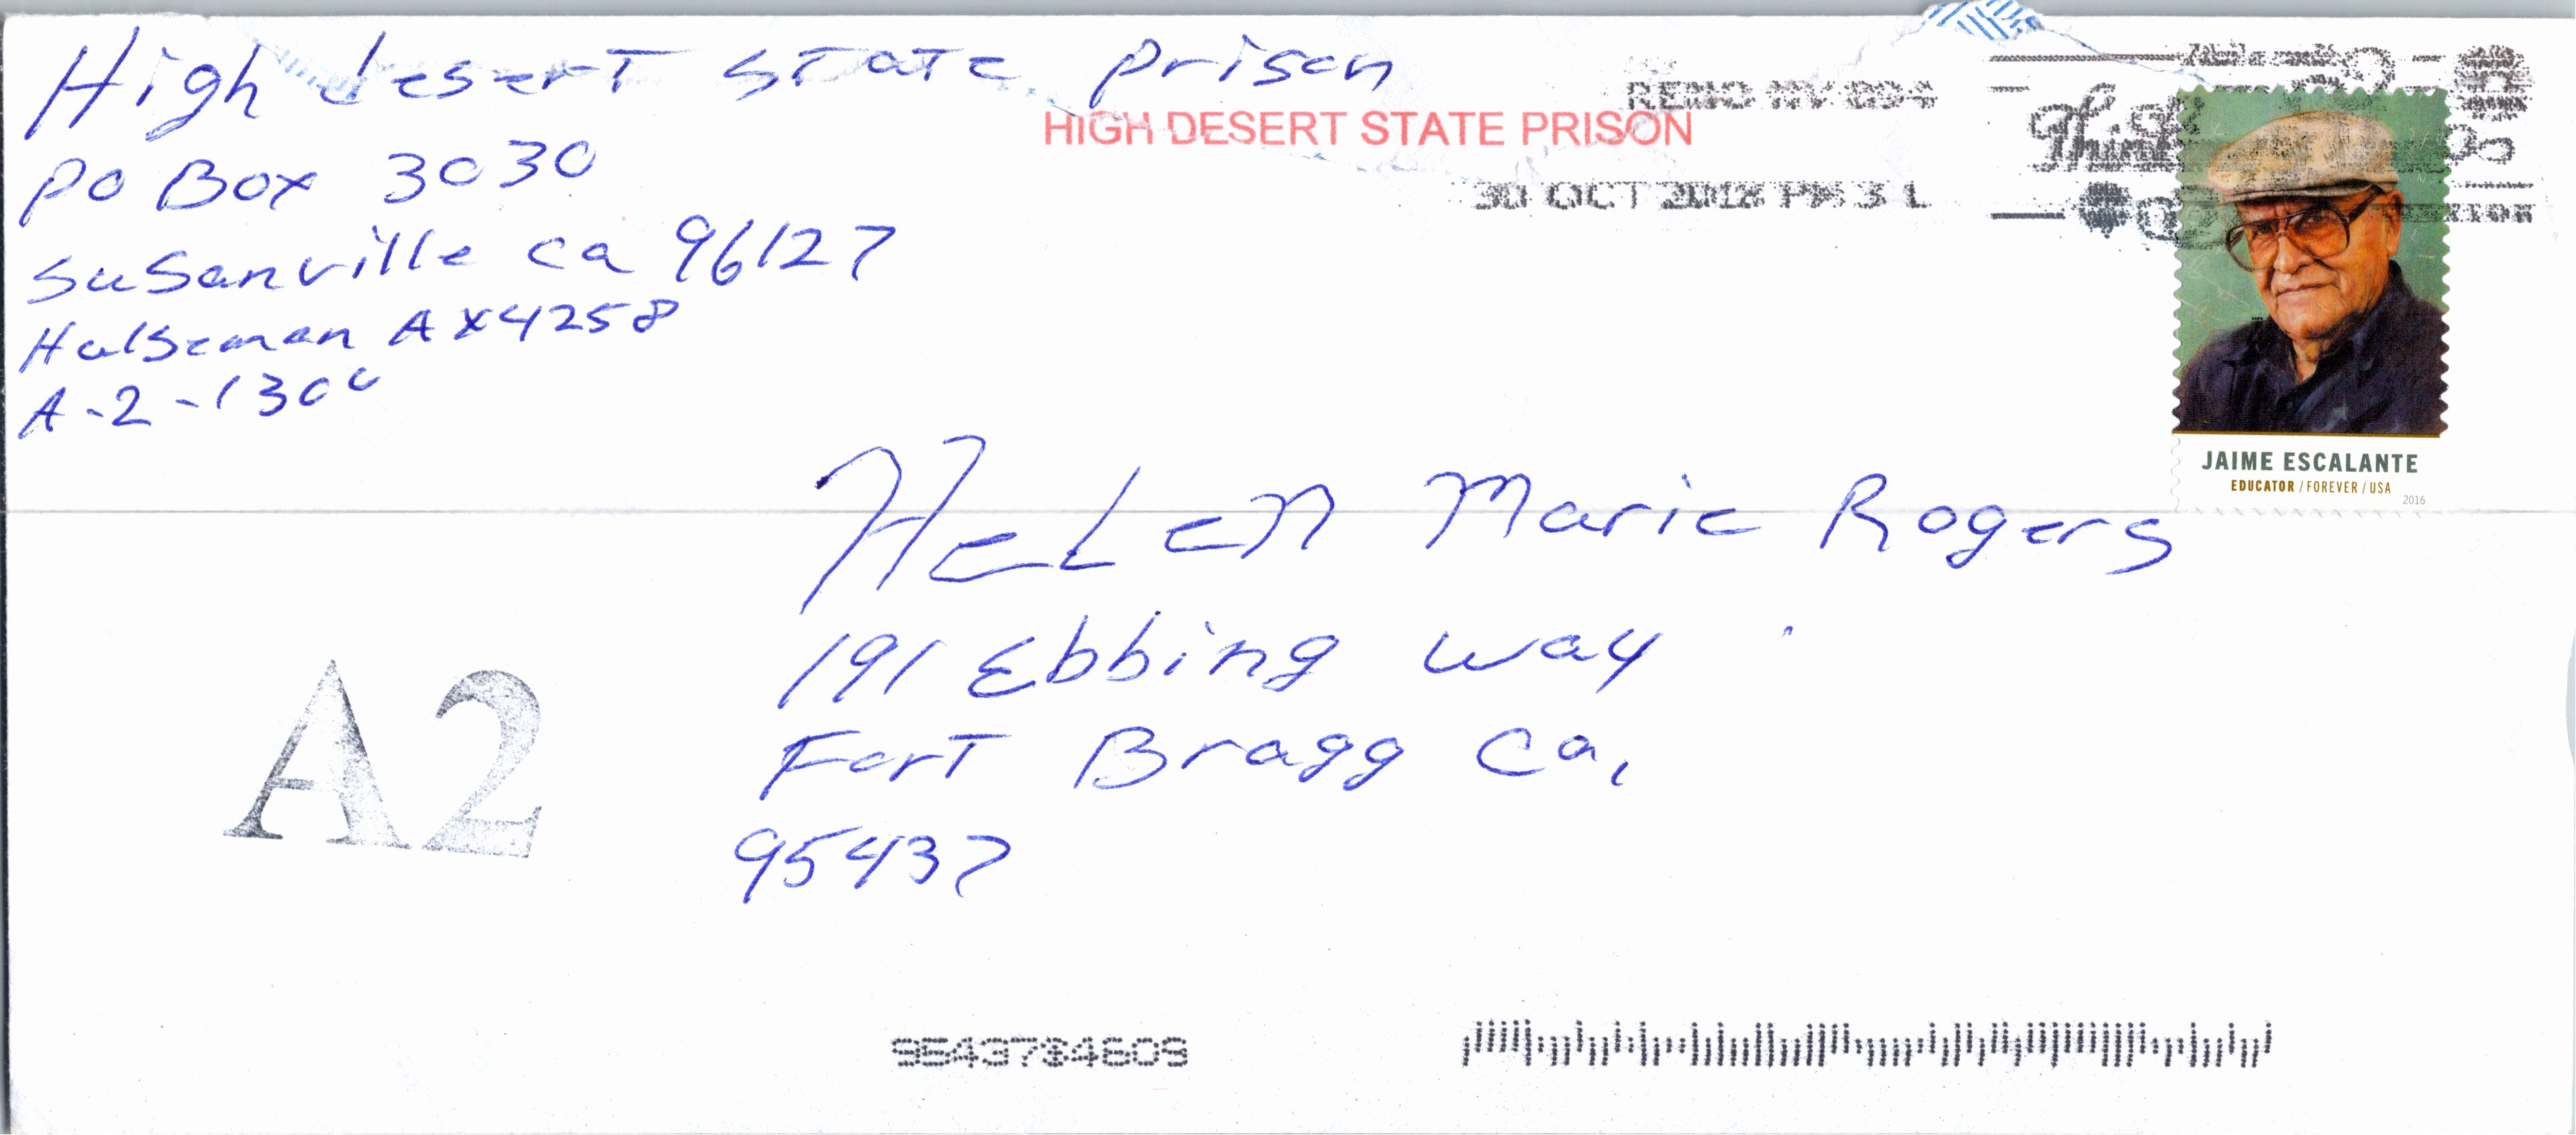 High desert state prison
PO Box 3030
Susanville ca 96127
Halseman AX4258
A-2-130
HIGH DESERT STATE PRISON
RENO NV 894
30 OCT 2018 PM 3 L
Think
JAIME ESCALANTE
EDUCATOR / FOREVER / USA
2016
HeLen Marie Rogers
191 Ebbing way
Fort Bragg Ca,
95437
A2